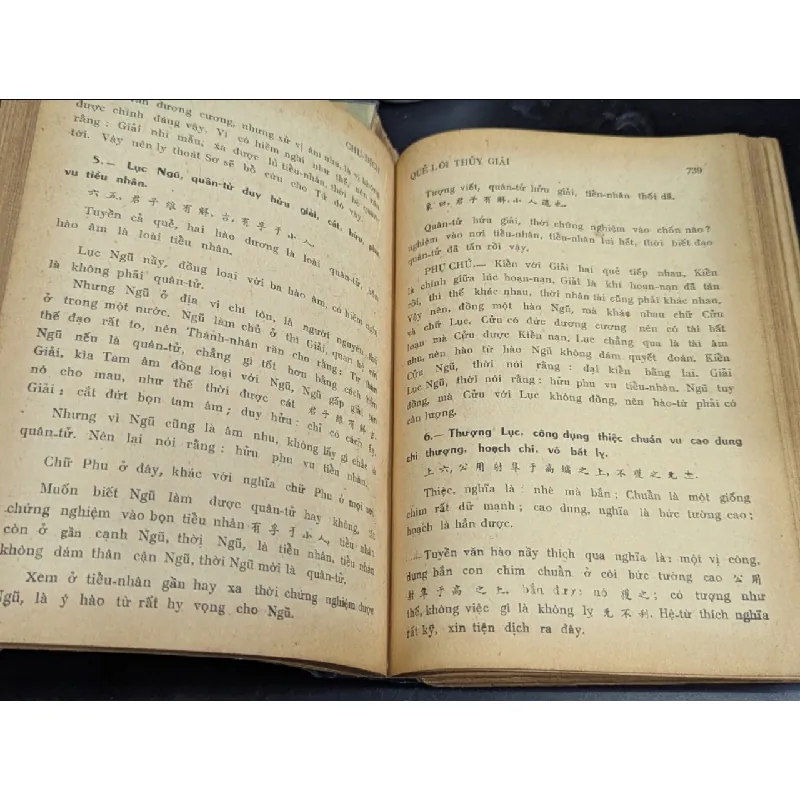 CHU-DỊCH
dương cương, nhưng xử vị âm nhu, là vị không
được chính đáng vậy. Vì có hiềm nghi như thế, nên
rằng: Giải nhi mẫu, xa được lũ tiểu-nhân, thời
tới. Vậy nên ly thoát Sơ sẽ bồ cứu cho Tứ đó vậy.
5.— Lục Ngũ, quân-tử duy hữu giải, cát, hữu phu
vu tiểu nhân.
六五, 君子維有解, 吉, 有孚于小人
Tuyền cả quẻ, hai hào dương là loài quân-tử, bốn
hào âm là loài tiểu nhân.
Lục Ngũ này, đồng loại với ba hào âm, có hiềm nghi
là không phải quân-tử.
Nhưng Ngũ ở địa vị chí tôn, là người nguyên-thủ
ở trong một nước. Ngũ làm chủ ở thì Giải, quan hệ với
thế đạo rất to, nên Thánh-nhân răn cho rằng: Tự thân
Ngũ nếu là quân-tử, chẳng gì tốt hơn bằng cách
Giải, kìa Tam âm đồng loại với Ngũ, Ngũ gấp giải
nó cho mau, như thế thời được cát 君子維有解吉.
Giải: cắt đứt bọn tam âm; duy hữu: chỉ có cách ấy.
Nhưng vì Ngũ cũng là âm nhu, không lấy gì chắt là
quân-tử. Nên lại nói rằng: hữu phu vu tiểu nhân.
Chữ Phu ở đây, khác với nghĩa chữ Phu ở mọi nơi.
Muốn biết Ngũ làm được quân-tử hay không, thì
chứng nghiệm vào bọn tiểu nhân 有孚于小人 tiểu nhân
còn ở gần cạnh Ngũ, thời Ngũ, là tiểu nhân, tiểu nhân
không dám thân cận Ngũ, thời Ngũ mới là quân-tử.
Xem ở tiểu-nhân gần hay xa thời chứng nghiệm được
Ngũ, là ý hào từ rất hy vọng cho Ngũ.
QUẺ LÔI THỦY GIẢI 739
Tượng viết, quân-tử hữu giải, tiểu-nhân thối dã.
象曰, 君子有解, 小人退也.
Quân-tử hữu giải, thời chứng nghiệm vào chốn nào?
nghiệm vào nơi tiểu-nhân, tiểu-nhân lui hết, thời biết đạo
quân-tử đã tấn rồi vậy.
PHỤ CHÚ.— Kiền với Giải hai quẻ tiếp nhau. Kiền
là chính giữa lúc hoạn-nạn, Giải là khi hoạn-nạn đã tán
rồi, thì thế khác nhau, thời nhân tài cũng phải khác nhau,
Vậy nên, đồng một hào Ngũ, mà khác nhau chữ Cửu
và chữ Lục, Cửu có đức dương cương nên có tài bát
loạn mà Cửu được Kiền nạn, Lục chẳng qua là tài âm
nhu nên hào từ hào Ngũ không dám quyết đoán. Kiền
Cửu Ngũ, thời nói rằng: đại kiền bằng lai. Giải
Lục Ngũ, thời nói rằng: hữu phu vu tiểu-nhân. Ngũ tuy
đồng, mà Cửu với Lục không đồng, nên hào-từ phải có
cân lượng.
6.— Thượng Lục, công dụng thiệc chuẩn vu cao dung
chi thượng, hoạch chi, vô bất lỵ.
上六, 公用射隼于高墉之上, 不獲之
Thiệc, nghĩa là: nhè mà bắn; Chuẩn là một giống
chim rất dữ mạnh; cao dung, nghĩa là bức tường cao;
hoạch là hẳn được.
Tuyền văn hào nầy thích qua nghĩa là: một vị công,
dụng bắn con chim chuẩn ở cõi bức tường cao 公用
射隼于高之上, bắn đấy: nó 獲之; có tượng như
thế, không việc gì là không lỵ 无不利. Hệ-từ thích nghĩa
rất kỹ, xin tiện dịch ra đây.